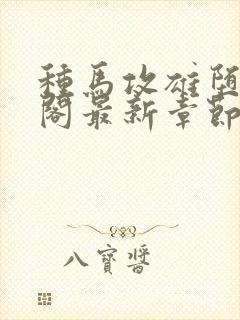 種馬攻雄堕
閣最新章節
八寶醬